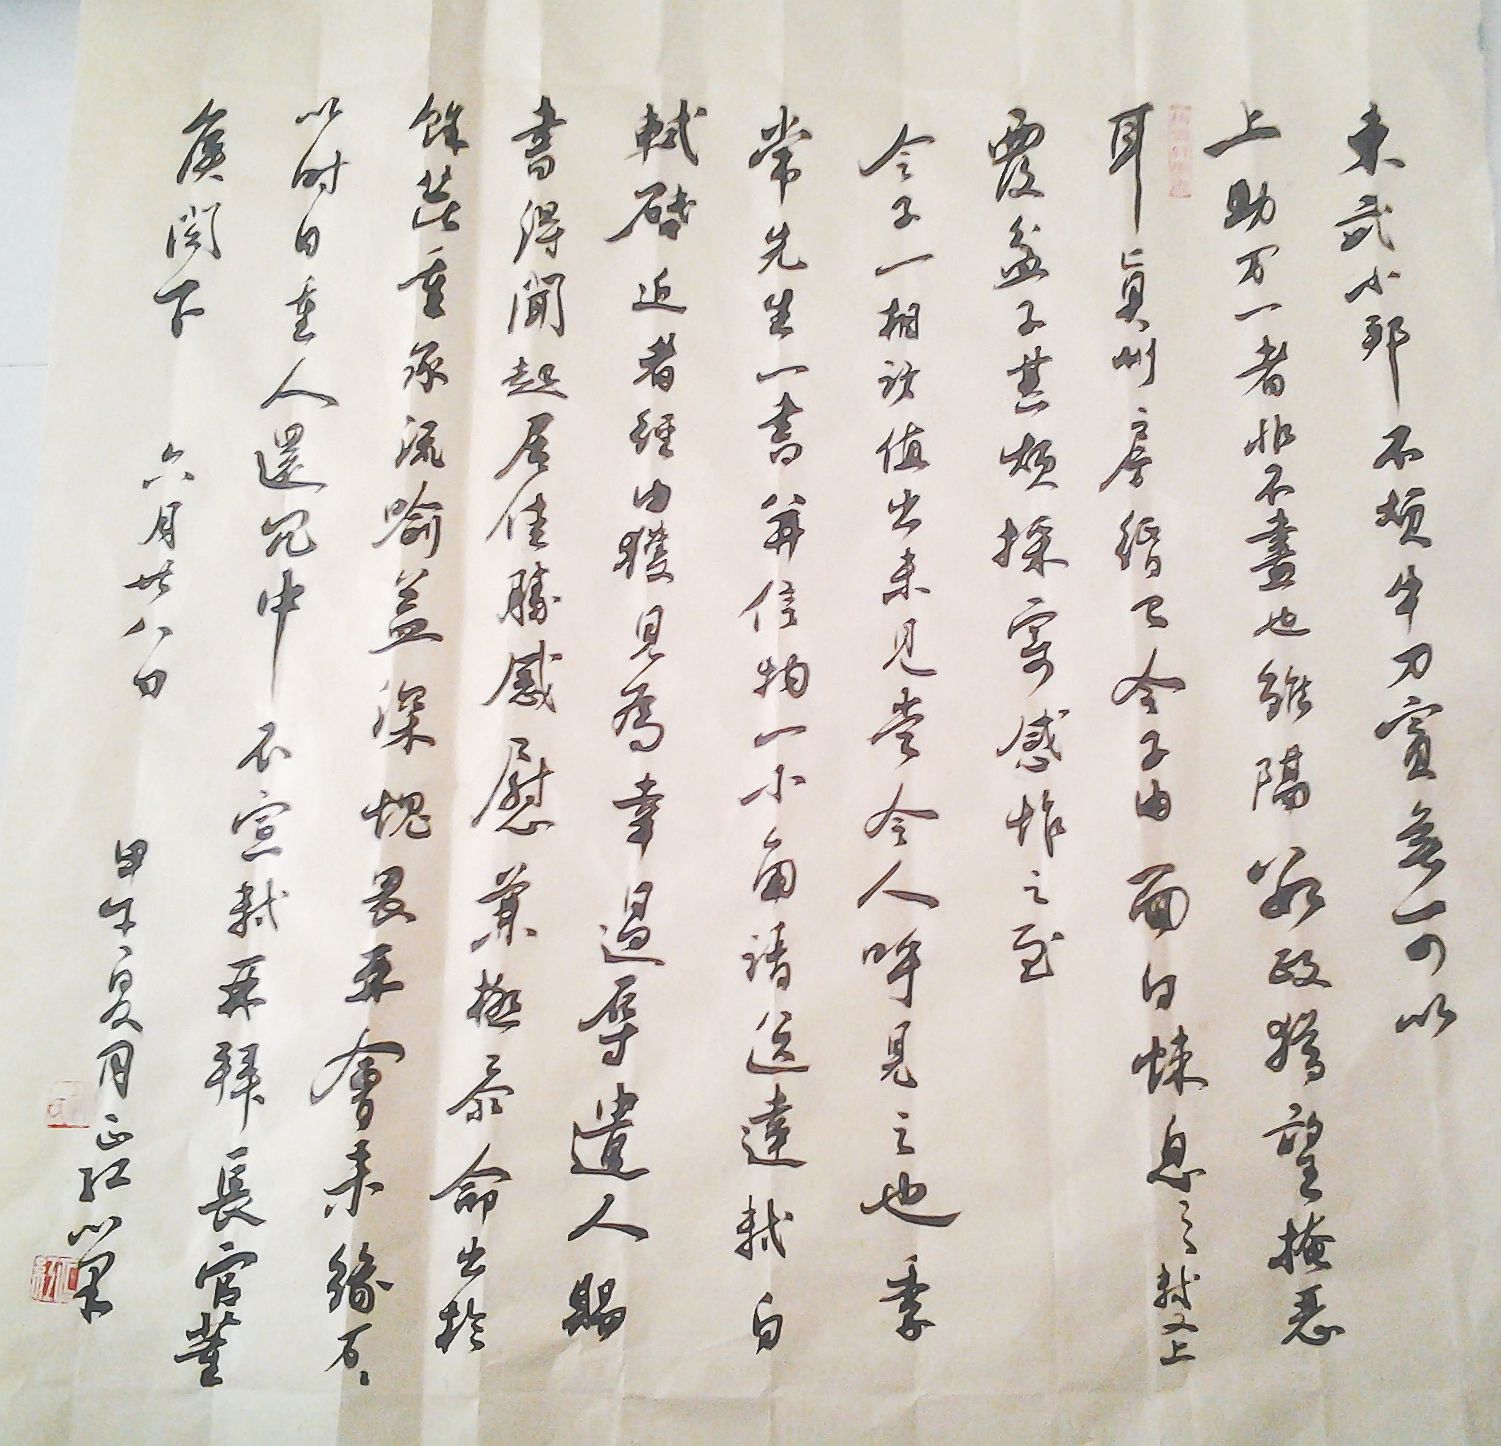 東武小邦不煩牛刀實無可以
上助万一者非不盡也雖隔數政猶望掩惡
耳真州房緡已令子由面白悚息〻軾又上
覆盆子甚煩採寄感怍之至
令子一相訪值出未見當令人呼見之也季
常先生一書并信物一小角請送達軾白
軾啓近者經由獲見為幸過辱遣人賜
書得聞起居佳勝感慰兼極忝命出於
餘芘重承流喻益深愧畏再會未緣万〻
以時自重人還冗中不宣軾再拜長官董
侯閤下六月廿八日
甲午夏月正紅